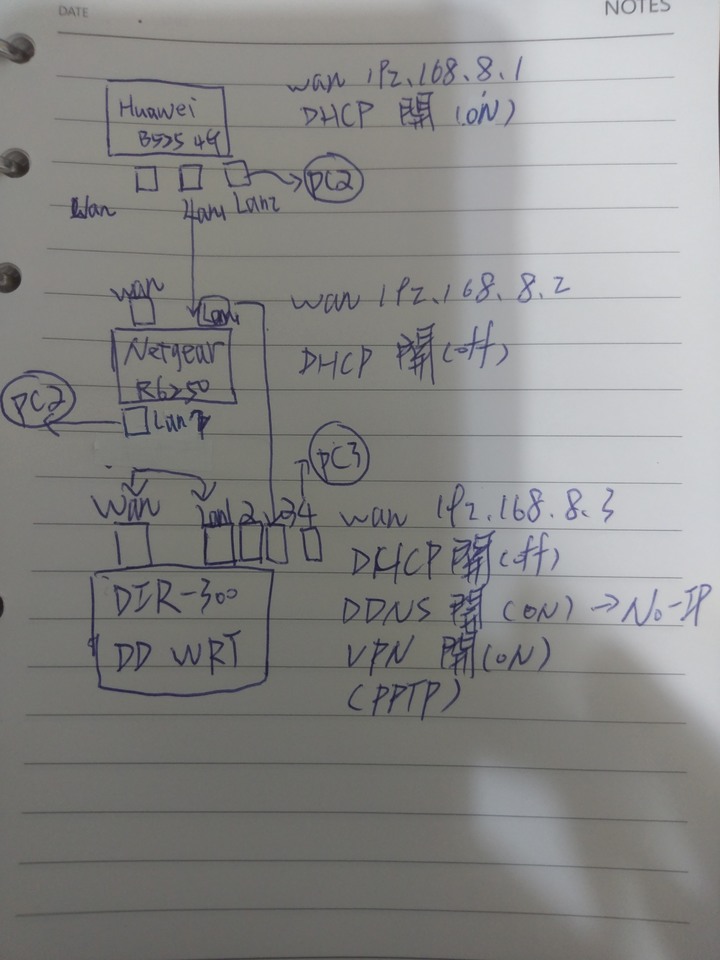 DATE
NOTES
Huawei
B525 4G
wan 192.168.8.1
DHCP 開 (ON)
Wan
Lan1
Lan2
PC2
wan
Lan1
Netgear
R6250
wan 192.168.8.2
DHCP 開 (off)
PC2
Lan
PC3
Wan
Lan1 2 3 4
DIR-300
DD WRT
wan 192.168.8.3
DHCP 開 (off)
DDNS 開 (ON) → No-IP
VPN 開 (ON)
(PPTP)